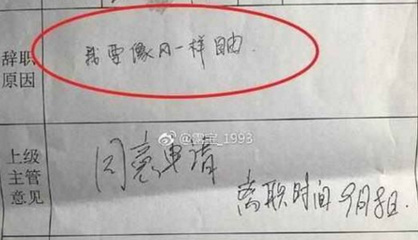 辞职
原因
我要像风一样自由.
@露宝_1993
上级
主管
意见
同意申请
离职时间9月8日.